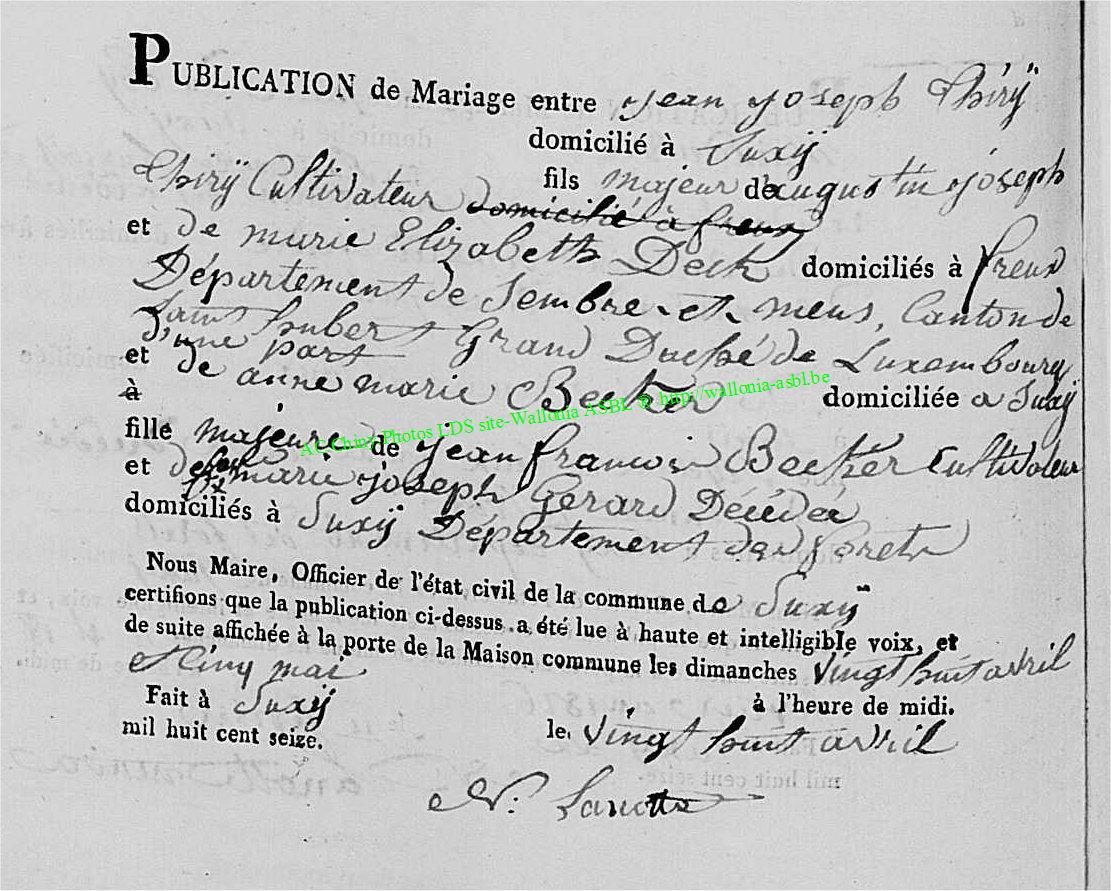 PUBLICATION de Mariage entre jean joseph Thirÿ
domicilié à Suxÿ
fils majeur de augustin joseph
Thirÿ Cultivateur domicilié à freux
et de marie Elizabeth Deck domiciliés à freux
Département de Sembre et meus, Canton de
Saint hubert Grand Duché de Luxembourg
d'une part
et de anne marie Becker domiciliée a Suxÿ
à
fille majeure de jean francois Becker Cultivateur
et de marie joseph Gerard Décédée
domiciliés à Suxÿ Département des forets
Nous Maire, Officier de l'état civil de la commune de Suxÿ
certifions que la publication ci-dessus a été lue à haute et intelligible voix, et
de suite affichée à la porte de la Maison commune les dimanches vingt huit avril
et Cinq mai
à l'heure de midi.
Fait à Suxÿ
le vingt huit avril
mil huit cent seize.
AC Chiny Photos LDS site-Wallonia ASBL © http://wallonia-asbl.be